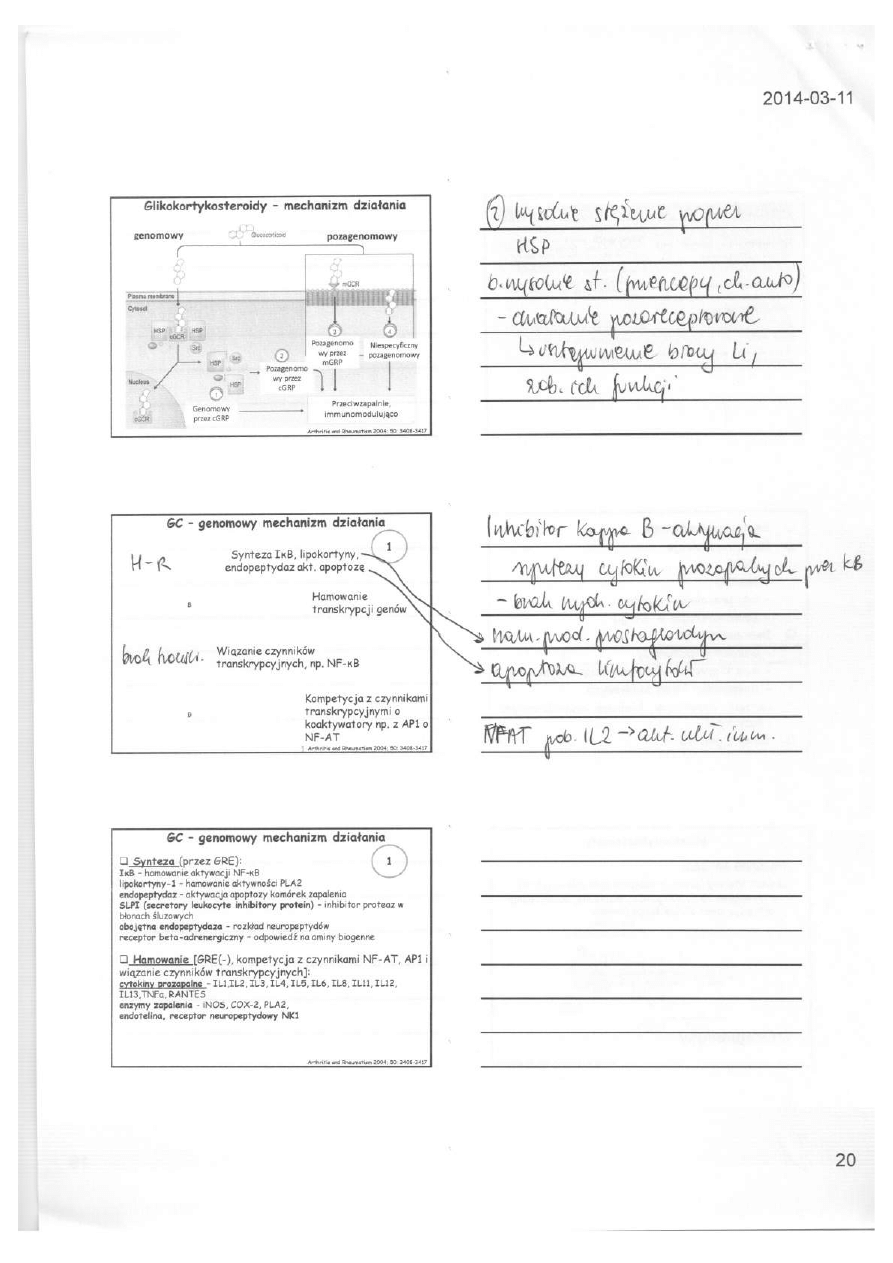 2014-03-11
Glikokortykosteroidy – mechanizm działania
genomowy
pozagenomowy
Glucocorticoid
mGCR
Plasma membrane
Cytosol
HSP
HSP
cGCR
Src
HSP
Src
HSP
Nucleus
cGCR
1
2
3
4
Pozagenomo
wy przez
mGRP
Niespecyficzny
pozagenomowy
Pozagenomo
wy przez
cGRP
Genomowy
przez cGRP
Przeciwzapalnie,
immunomodulująco
Arthritis and Rheumatism 2004; 50: 3408-3417
2) wysokie stężenie poprzez
HSP
b. wysokie st. (przeszczepy, ch. auto)
- działanie pozareceptorowe
GC - genomowy mechanizm działania
1
H-R
Synteza IκB, lipokortyny,
endopeptydaz akt. apoptozę
B
Hamowanie
transkrypcji genów
Wiązanie czynników
transkrypcyjnych, np. NF-κB
D
Kompetycja z czynnikami
transkrypcyjnymi o
koaktywatory np. z AP1 o
NF-AT
Arthritis and Rheumatism 2004; 50: 3408-3417
Inhibitor Kappa B - aktywacja
syntezy cytokin prozapalnych przez kB
- brak cytokin
ham. prod. prostaglandyn
apoptoza limfocytów
NFAT pob. IL2 → akt. ukł. imm.
GC - genomowy mechanizm działania
1
❑ Synteza (przez GRE):
IκB – hamowanie aktywacji NF-κB
lipokortyny-1 – hamowanie aktywności PLA2
endopeptydaz – aktywacja apoptozy komórek zapalenia
SLPI (secretory leukocyte inhibitory protein) – inhibitor proteaz w
błonach śluzowych
obojętna endopeptydaza – rozkład neuropeptydów
receptor beta-adrenergiczny – odpowiedź na aminy biogenne
❑ Hamowanie [GRE(-), kompetycja z czynnikami NF-AT, AP1 i
wiązanie czynników transkrypcyjnych]:
cytokiny prozapalne – IL1,IL2, IL3, IL4, IL5, IL6, IL8, IL11, IL12,
IL13,TNFα, RANTES
enzymy zapalenia – iNOS, COX-2, PLA2,
endotelina, receptor neuropeptydowy NK1
Arthritis and Rheumatism 2004; 50: 3408-3417
20